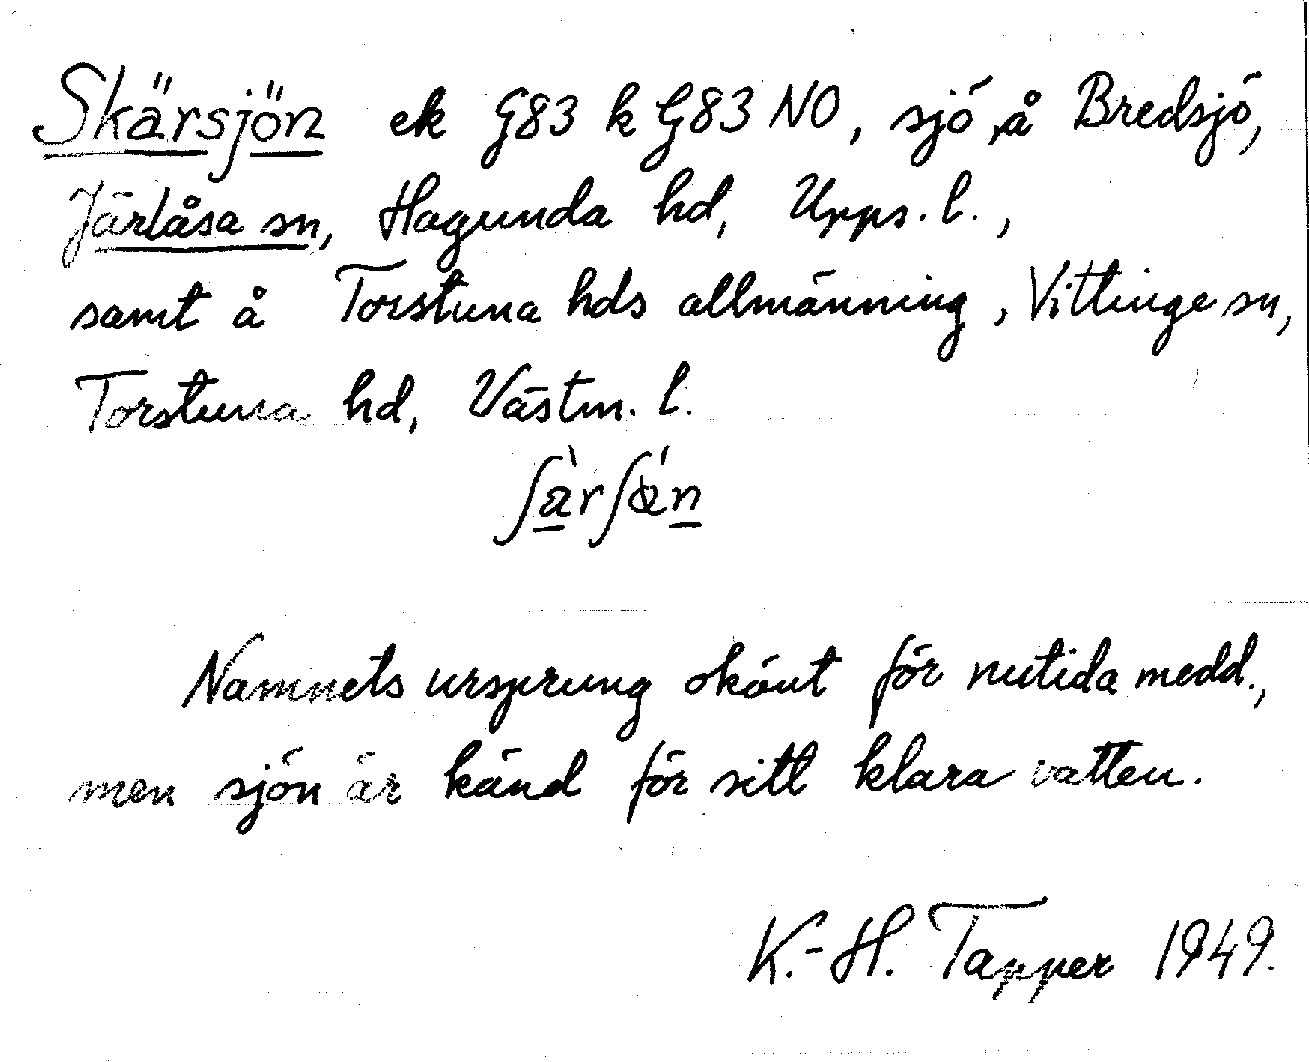 Skärsjön ek G83 k G83 NO, sjö å Bredsjö,
Järlåsa sn, Hagunda hd, Upps. l.,
samt å Torstuna hds allmänning, Vittinge sn,
Torstuna hd, Västm. l.
Namnets ursprung okänt för nutida medd.,
men sjön är känd för sitt klara vatten.
K.-H. Tapper 1949.